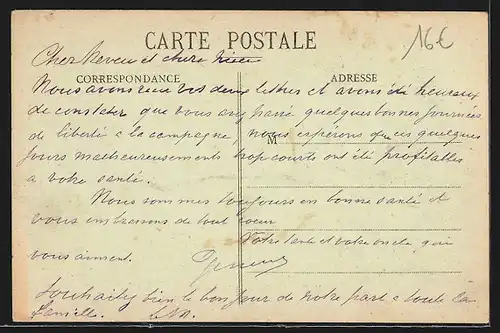 16€
CARTE POSTALE
Cher Neveu et chère Nièce
CORRESPONDANCE
ADRESSE
Nous avons reçu vos deux lettres et avons été heureux
de constater que vous ayez passé quelques bonnes journées
de liberté a la campagne, nous espérons que ces quelques
M
jours malheureusement trop courts ont été profitables
a votre santé.
Nous sommes toujours en bonne santé et
vous embrassons de tout coeur
Votre tante et votre oncle qui
vous aiment.
Souhaitez bien le bonjour de notre part a toute la
famille.